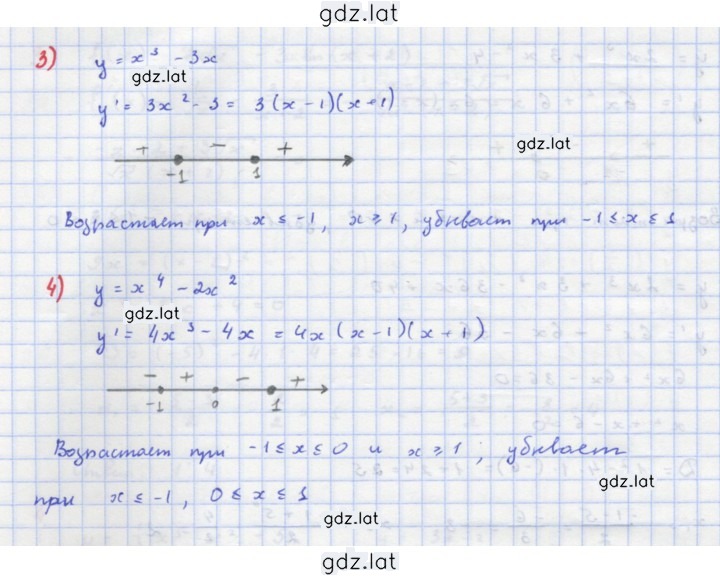 gdz.lat
3) y = x³ - 3x
gdz.lat
y' = 3x² - 3 = 3(x-1)(x+1)
gdz.lat
+ - +
-1 1
Возрастает при x ≤ -1, x ≥ 1, убывает при -1 ≤ x ≤ 1
4) y = x⁴ - 2x²
gdz.lat
y' = 4x³ - 4x = 4x(x-1)(x+1)
- + - +
-1 0 1
Возрастает при -1 ≤ x ≤ 0 и x ≥ 1; убывает
gdz.lat
при x ≤ -1, 0 ≤ x ≤ 1
gdz.lat
gdz.lat